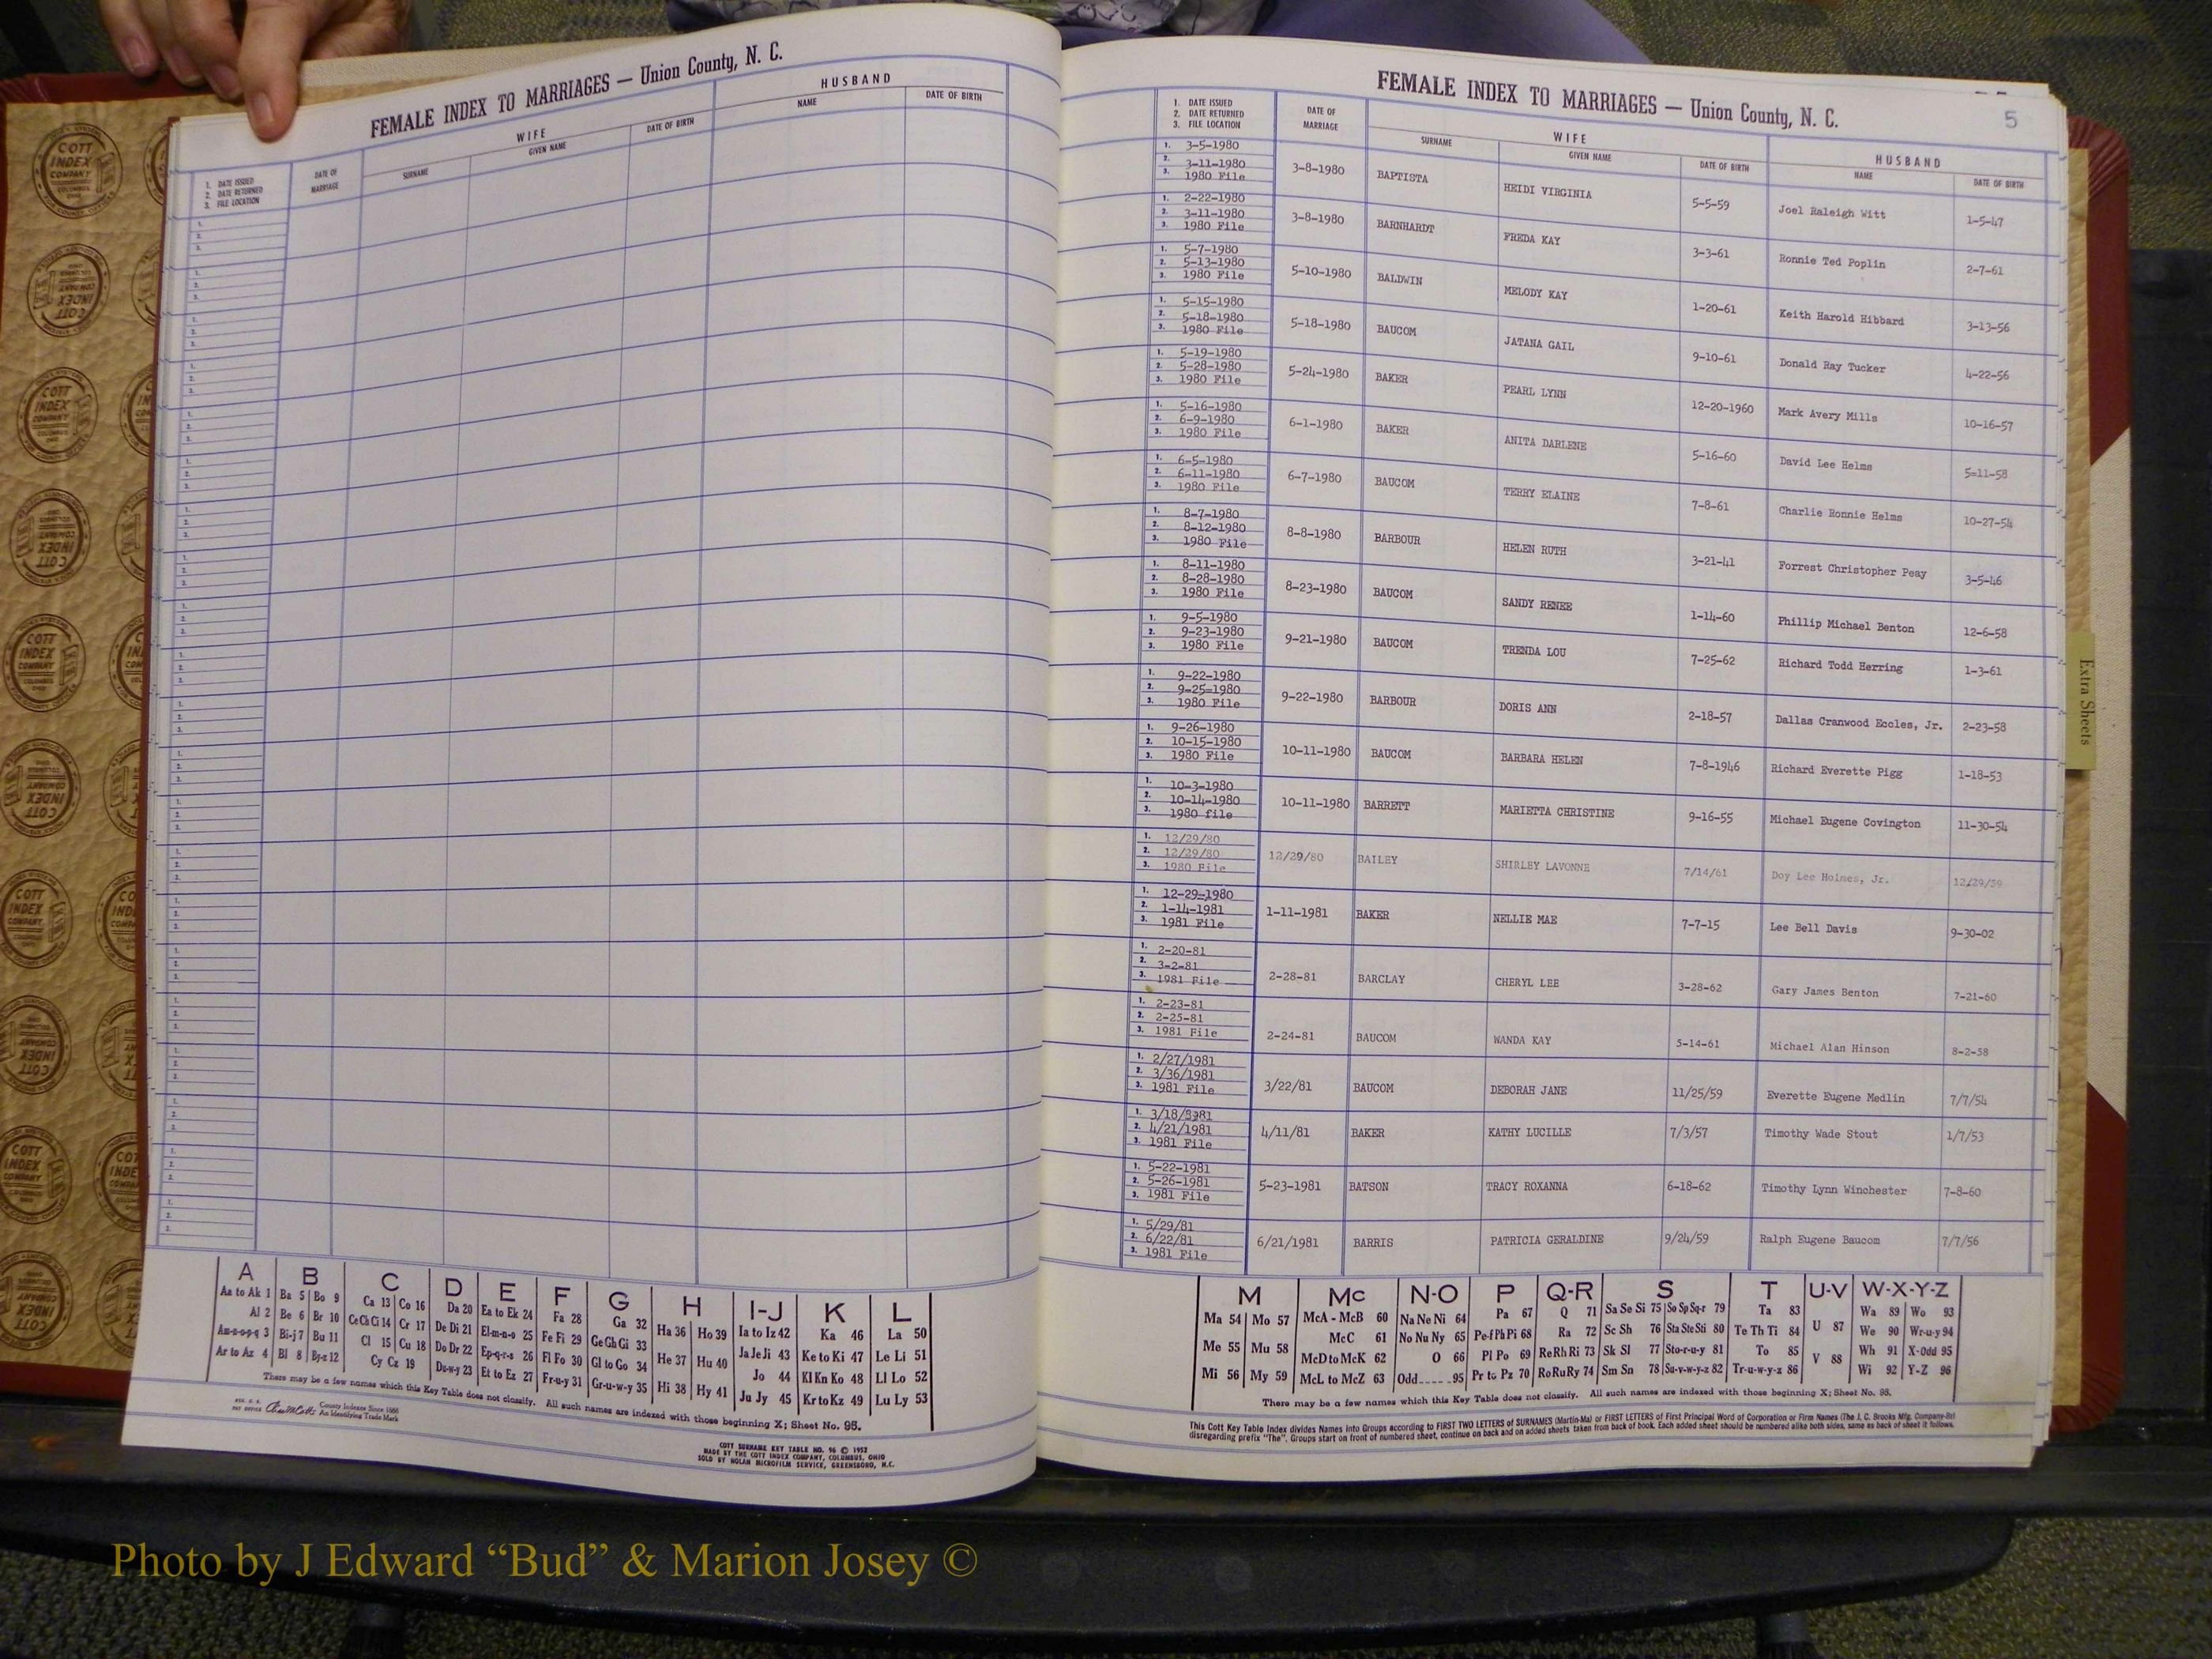 FEMALE INDEX TO MARRIAGES — Union County, N. C.
1. DATE ISSUED
2. DATE RETURNED
3. FILE LOCATION
DATE OF MARRIAGE
WIFE
SURNAME GIVEN NAME DATE OF BIRTH
HUSBAND
NAME DATE OF BIRTH
A B C D E F G H I-J K L
Aa to Ak 1 Ba 5 Bo 9 Ca 13 Co 16 Da 20 Ea to Ek 24 Fa 28 Ga 32 Ha 36 Ho 39 Ia to Iz 42 Ka 46 La 50
Al 2 Be 6 Br 10 Ce Ch Ci 14 Cr 17 De Di 21 El-m-n-o 25 Fe Fi 29 Ge Gh Gi 33 He 37 Hu 40 Ja Je Ji 43 Ke to Ki 47 Le Li 51
Am-n-o-p-q 3 Bi-j 7 Bu 11 Cl 15 Cu 18 Do Dr 22 Ep-q-r-s 26 Fl Fo 30 Gl to Go 34 Hi 38 Hy 41 Jo 44 Kl Kn Ko 48 Ll Lo 52
Ar to Az 4 Bl 8 By-z 12 Cy Cz 19 Du-w-y 23 Et to Ez 27 Fr-u-y 31 Gr-u-w-y 35 Ju Jy 45 Kr to Kz 49 Lu Ly 53
There may be a few names which this Key Table does not classify. All such names are indexed with those beginning X; Sheet No. 95.
County Indexes Since 1888
An Identifying Trade Mark
COTT SURNAME KEY TABLE NO. 96 © 1952
MADE BY THE COTT INDEX COMPANY, COLUMBUS, OHIO
SOLD BY NOLAN MICROFILM SERVICE, GREENSBORO, N.C.
FEMALE INDEX TO MARRIAGES — Union County, N. C.
5
1. DATE ISSUED
2. DATE RETURNED
3. FILE LOCATION
DATE OF MARRIAGE
WIFE
SURNAME GIVEN NAME DATE OF BIRTH
HUSBAND
NAME DATE OF BIRTH
1. 3-5-1980
2. 3-11-1980
3. 1980 File
3-8-1980 BAPTISTA HEIDI VIRGINIA 5-5-59 Joel Raleigh Witt 1-5-47
1. 2-22-1980
2. 3-11-1980
3. 1980 File
3-8-1980 BARNHARDT FREDA KAY 3-3-61 Ronnie Ted Poplin 2-7-61
1. 5-7-1980
2. 5-13-1980
3. 1980 File
5-10-1980 BALDWIN MELODY KAY 1-20-61 Keith Harold Hibbard 3-13-56
1. 5-15-1980
2. 5-18-1980
3. 1980 File
5-18-1980 BAUCOM JATANA GAIL 9-10-61 Donald Ray Tucker 4-22-56
1. 5-19-1980
2. 5-28-1980
3. 1980 File
5-24-1980 BAKER PEARL LYNN 12-20-1960 Mark Avery Mills 10-16-57
1. 5-16-1980
2. 6-9-1980
3. 1980 File
6-1-1980 BAKER ANITA DARLENE 5-16-60 David Lee Helms 5-11-58
1. 6-5-1980
2. 6-11-1980
3. 1980 File
6-7-1980 BAUCOM TERRY ELAINE 7-8-61 Charlie Ronnie Helms 10-27-54
1. 8-7-1980
2. 8-12-1980
3. 1980 File
8-8-1980 BARBOUR HELEN RUTH 3-21-41 Forrest Christopher Peay 3-5-46
1. 8-11-1980
2. 8-28-1980
3. 1980 File
8-23-1980 BAUCOM SANDY RENEE 1-14-60 Phillip Michael Benton 12-6-58
1. 9-5-1980
2. 9-23-1980
3. 1980 File
9-21-1980 BAUCOM TRENDA LOU 7-25-62 Richard Todd Herring 1-3-61
1. 9-22-1980
2. 9-25-1980
3. 1980 File
9-22-1980 BARBOUR DORIS ANN 2-18-57 Dallas Cranwood Eccles, Jr. 2-23-58
1. 9-26-1980
2. 10-15-1980
3. 1980 File
10-11-1980 BAUCOM BARBARA HELEN 7-8-1946 Richard Everette Pigg 1-18-53
1. 10-3-1980
2. 10-14-1980
3. 1980 file
10-11-1980 BARRETT MARIETTA CHRISTINE 9-16-55 Michael Eugene Covington 11-30-54
1. 12/29/80
2. 12/29/80
3. 1980 File
12/29/80 BAILEY SHIRLEY LAVONNE 7/14/61 Doy Lee Holmes, Jr. 12/29/59
1. 12-29-1980
2. 1-14-1981
3. 1981 File
1-11-1981 BAKER NELLIE MAE 7-7-15 Lee Bell Davis 9-30-02
1. 2-20-81
2. 3-2-81
3. 1981 File
2-28-81 BARCLAY CHERYL LEE 3-28-62 Gary James Benton 7-21-60
1. 2-23-81
2. 2-25-81
3. 1981 File
2-24-81 BAUCOM WANDA KAY 5-14-61 Michael Alan Hinson 8-2-58
1. 2/27/1981
2. 3/36/1981
3. 1981 File
3/22/81 BAUCOM DEBORAH JANE 11/25/59 Everette Eugene Medlin 7/7/54
1. 3/18/
2. 4/21/1981
3. 1981 File
4/11/81 BAKER KATHY LUCILLE 7/3/57 Timothy Wade Stout 1/7/53
1. 5-22-1981
2. 5-26-1981
3. 1981 File
5-23-1981 BATSON TRACY ROXANNA 6-18-62 Timothy Lynn Winchester 7-8-60
1. 5/29/81
2. 6/22/81
3. 1981 File
6/21/1981 BARRIS PATRICIA GERALDINE 9/24/59 Ralph Eugene Baucom 7/7/56
Extra Sheets
M Mc N-O P Q-R S T U-V W-X-Y-Z
Ma 54 Mo 57 McA - McB 60 Na Ne Ni 64 Pa 67 Q 71 Sa Se Si 75 So Sp Sq-r 79 Ta 83 U 87 Wa 89 Wo 93
Me 55 Mu 58 McC 61 No Nu Ny 65 Pe-f Ph Pi 68 Ra 72 Sc Sh 76 Sta Ste Sti 80 Te Th Ti 84 V 88 We 90 Wr-u-y 94
McD to McK 62 O 66 Pl Po 69 Re Rh Ri 73 Sk Sl 77 Sto-r-u-y 81 To 85 Wh 91 X-Odd 95
Mi 56 My 59 McL to McZ 63 Odd-----95 Pr to Pz 70 Ro Ru Ry 74 Sm Sn 78 Su-v-w-y-z 82 Tr-u-w-y-z 86 Wi 92 Y-Z 96
There may be a few names which this Key Table does not classify. All such names are indexed with those beginning X; Sheet No. 95.
This Cott Key Table Index divides Names into Groups according to FIRST TWO LETTERS of SURNAMES (Martin-Ma) or FIRST LETTERS of First Principal Word of Corporation or Firm Names (The J. C. Brooks Mfg. Company-Br)
disregarding prefix "The". Groups start on front of numbered sheet, continue on back and on added sheets taken from back of book. Each added sheet should be numbered alike both sides, same as back of sheet it follows.
COTT
INDEX
COMPANY
Photo by J Edward “Bud” & Marion Josey ©